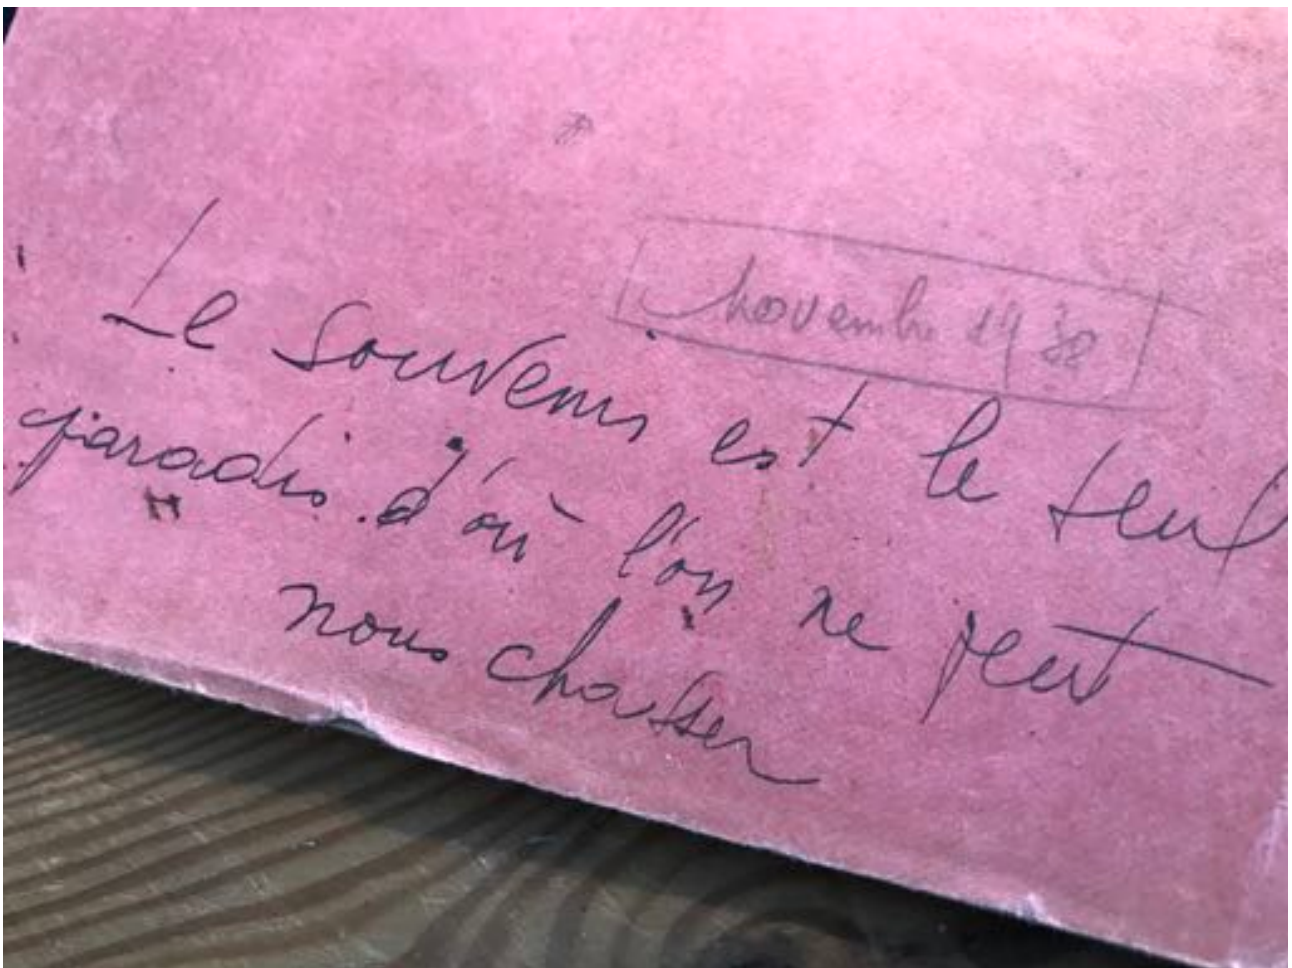 Novembre 1938
Le souvenir est le seul
paradis d'où l'on ne peut
nous chasser